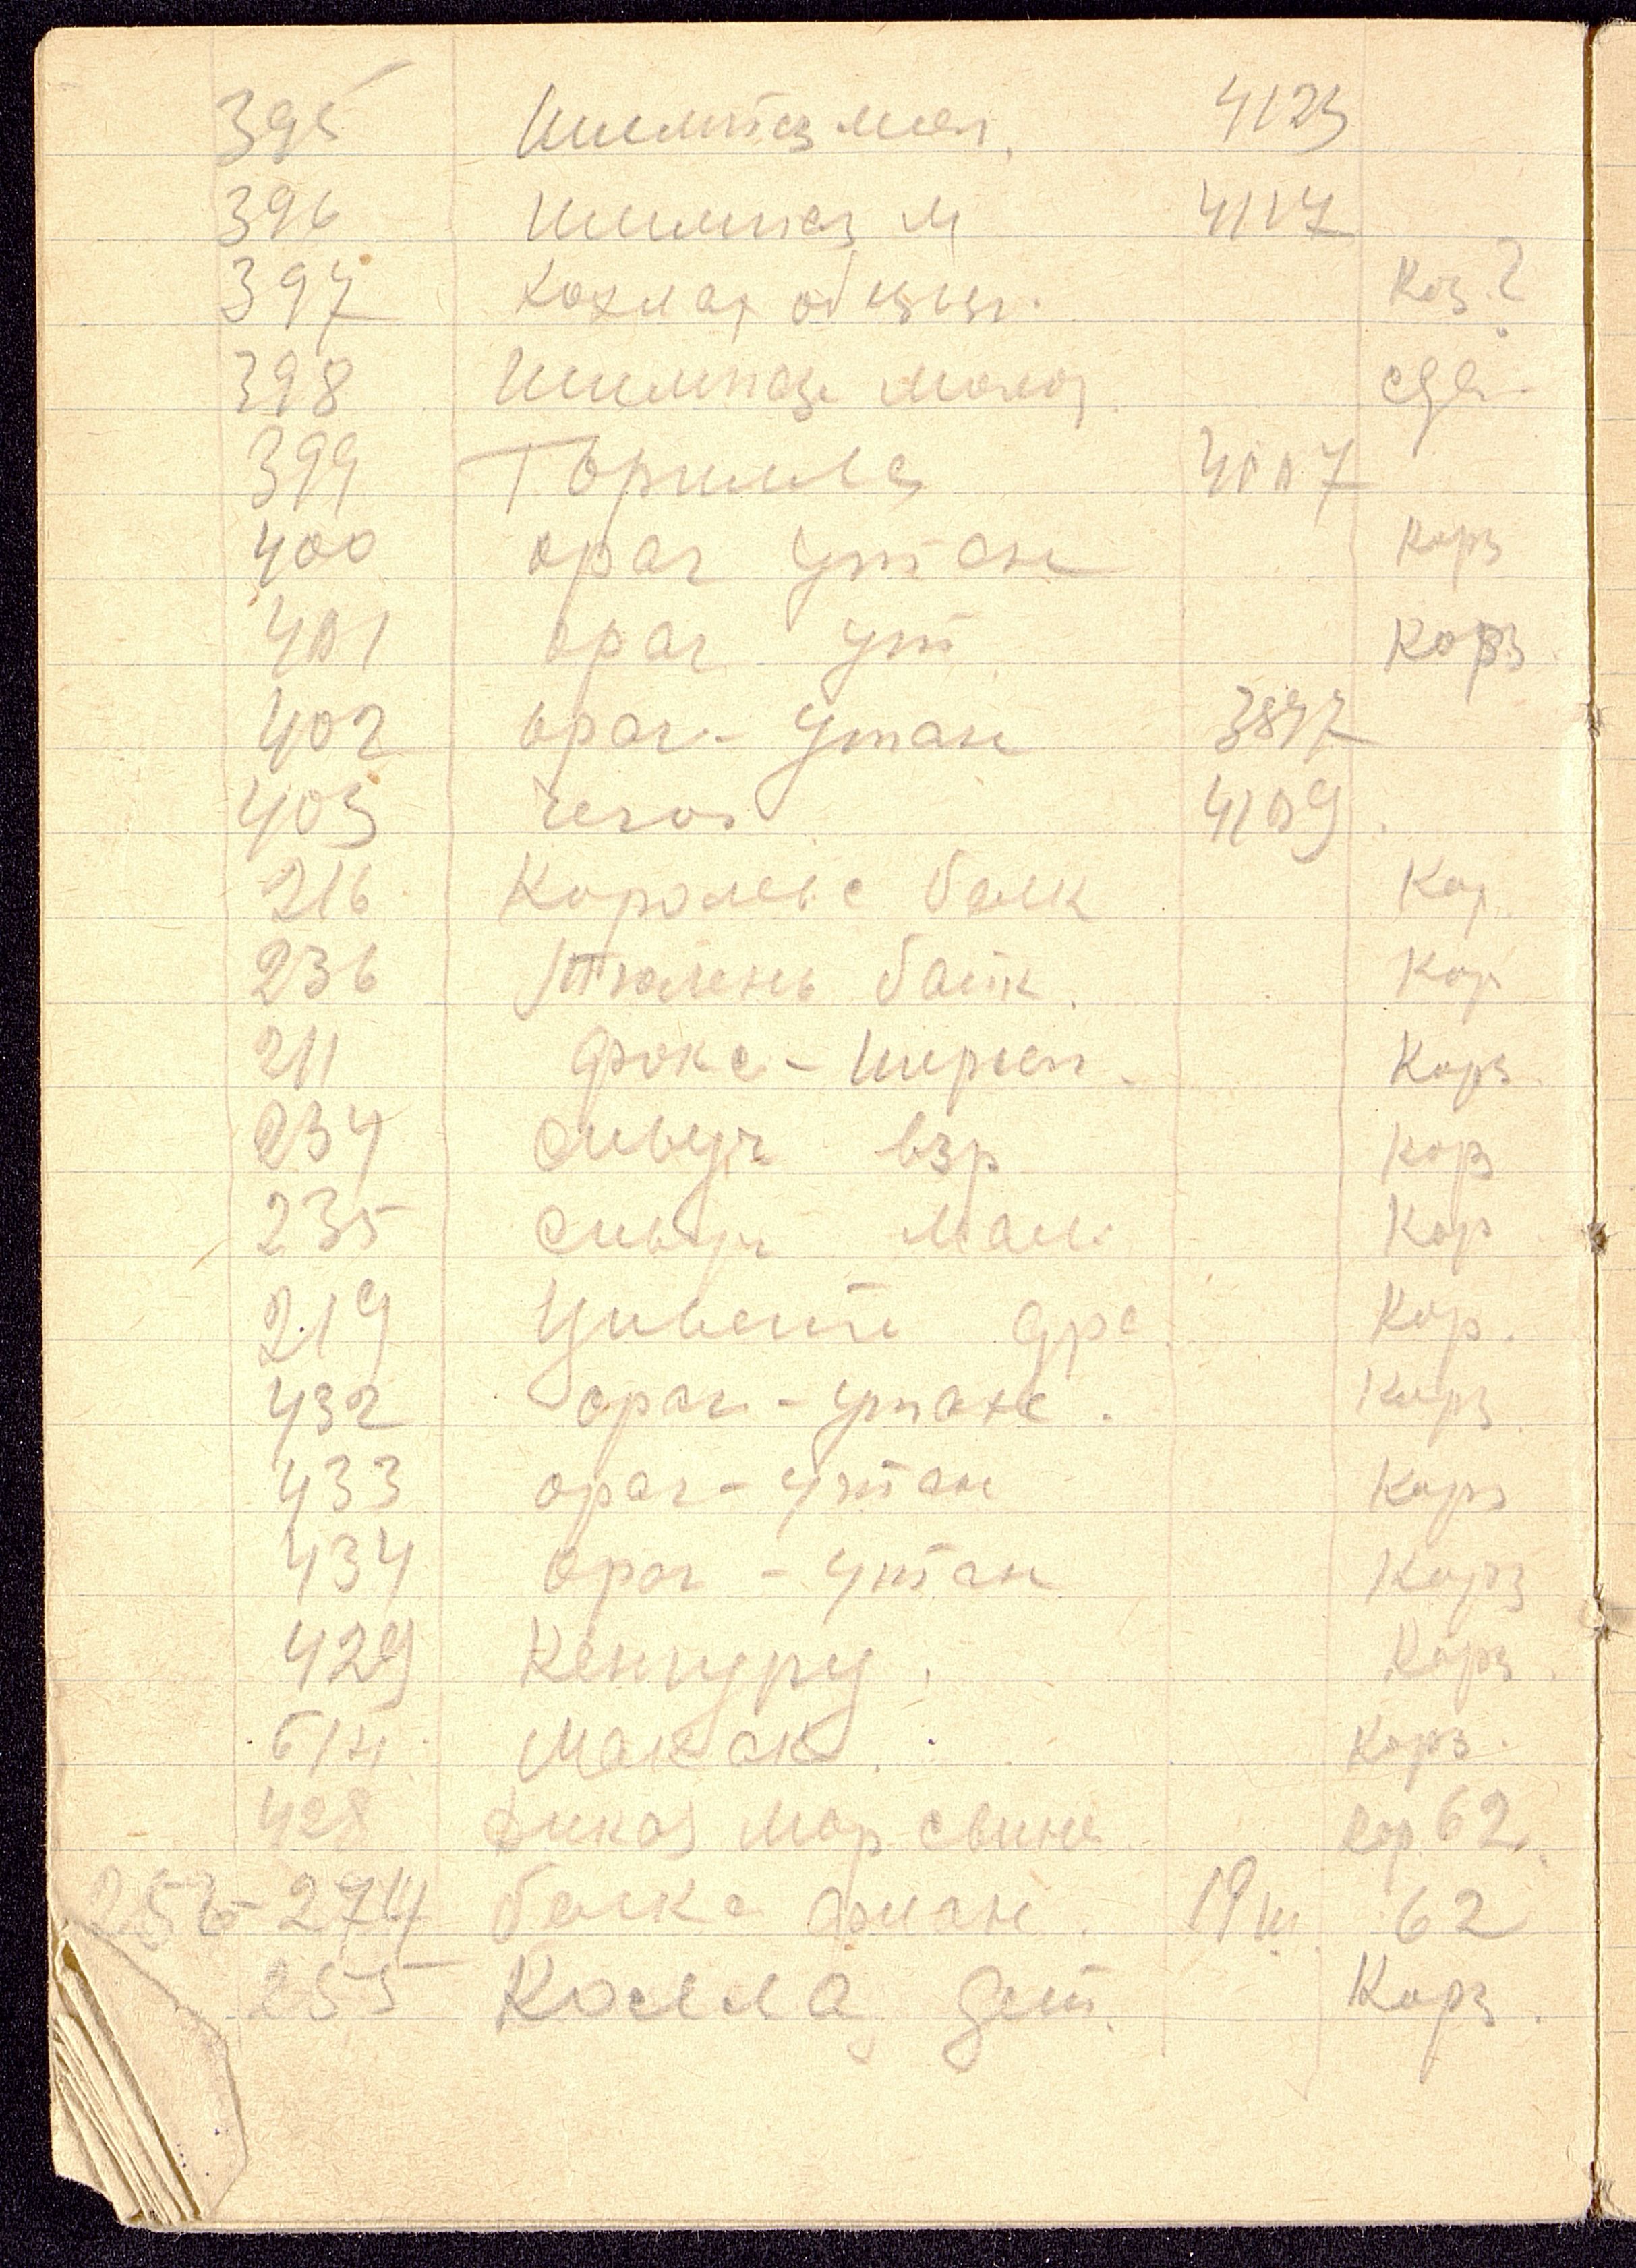 395 Шимпаз мол. 4123
396 Шимпаз м 4117
397 Хохлат обезьян. Коз.?
398 Шимпаз молод.
399 Горилла 4107
400 оранг утан Корз
401 оранг ут Корз
402 оранг-утан 3897
403 4109.
216 Королевс белк Кор.
236 Тюлень байк. Кор
211 Фокс-терьер. Корз.
234 сивуч взр Корз
235 сивуч мал. Кор
219 Цивета Кор.
432 оранг-утан. Корз.
433 оранг-утан Корз
434 оранг-утан Корз
429 Кенгуру. Корз.
514 Макак. Корз.
428 дикая мор свинка Кор 62.
256-274 белка 19 62
255 Коала дет. Корз.